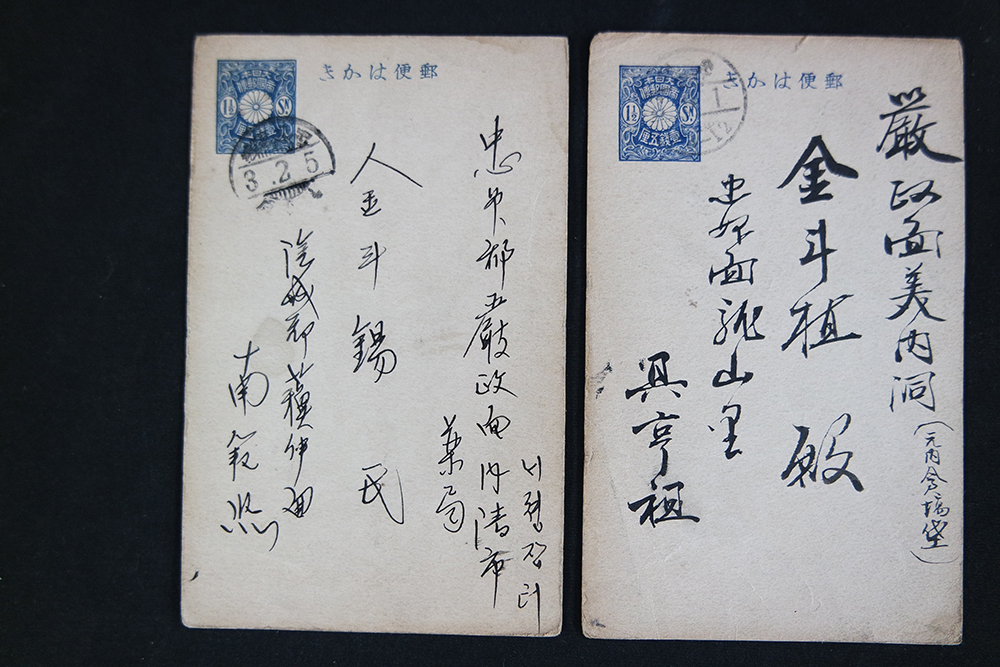 郵便はかき
大日本
帝國郵便
1½ Sⁿ
壹錢五厘
3.2.5
忠州郡嚴政面內清市
내청장터
藥局
金斗錫 氏
陰城郡蘇伊面
南
郵便はかき
大日本
帝國郵便
1½ Sⁿ
壹錢五厘
嚴政面美內洞
金斗植 殿
忠州面龍山里
具亨祖